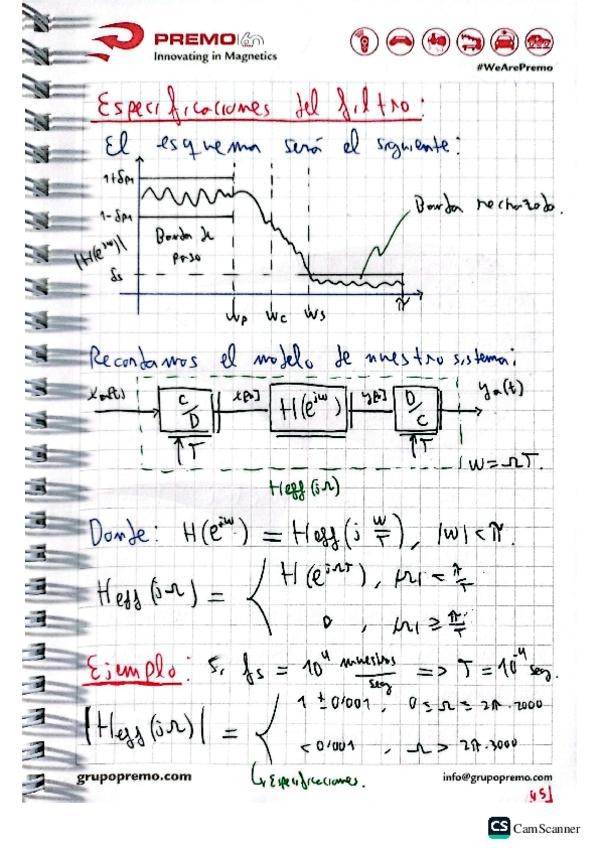 PREMO 60
Innovating in Magnetics
#WeArePremo
Especificaciones del filtro:
El esquema será el siguiente:
1+δp1
1-δp1
|H(e^jω)|
δs
Banda de
paso
Banda rechazada.
ωp ωc ωs π
Recordamos el modelo de nuestro sistema:
Xa(t) C/D x[n] H(e^jω) y[n] D/C ya(t)
T T
ω=ΩT.
Heff(jΩ)
Donde: H(e^jω) = Heff(j ω/T), |ω|<π.
Heff(jΩ) = { H(e^jΩT), |Ω| < π/T
0, |Ω| ≥ π/T
Ejemplo: Si fs = 10^4 muestras/seg => T = 10^-4 seg.
|Heff(jΩ)| = { 1 ± 0'001, 0 ≤ Ω ≤ 2π·2000
< 0'001, Ω > 2π·3000
↳ Especificaciones.
grupopremo.com
info@grupopremo.com
CS CamScanner